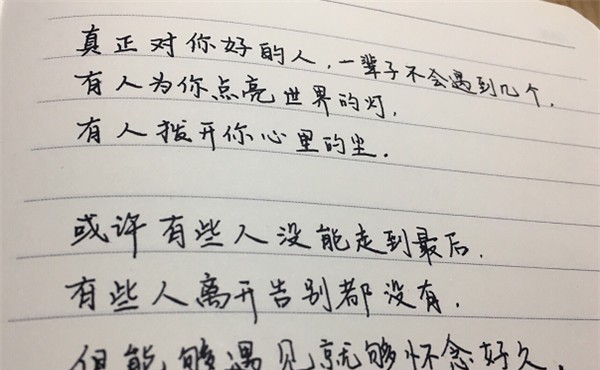 真正对你好的人，一辈子不会遇到几个，
有人为你点亮世界的灯，
有人拨开你心里的尘．
或许有些人没能走到最后，
有些人离开告别都没有，
但能够遇见就够怀念好久，